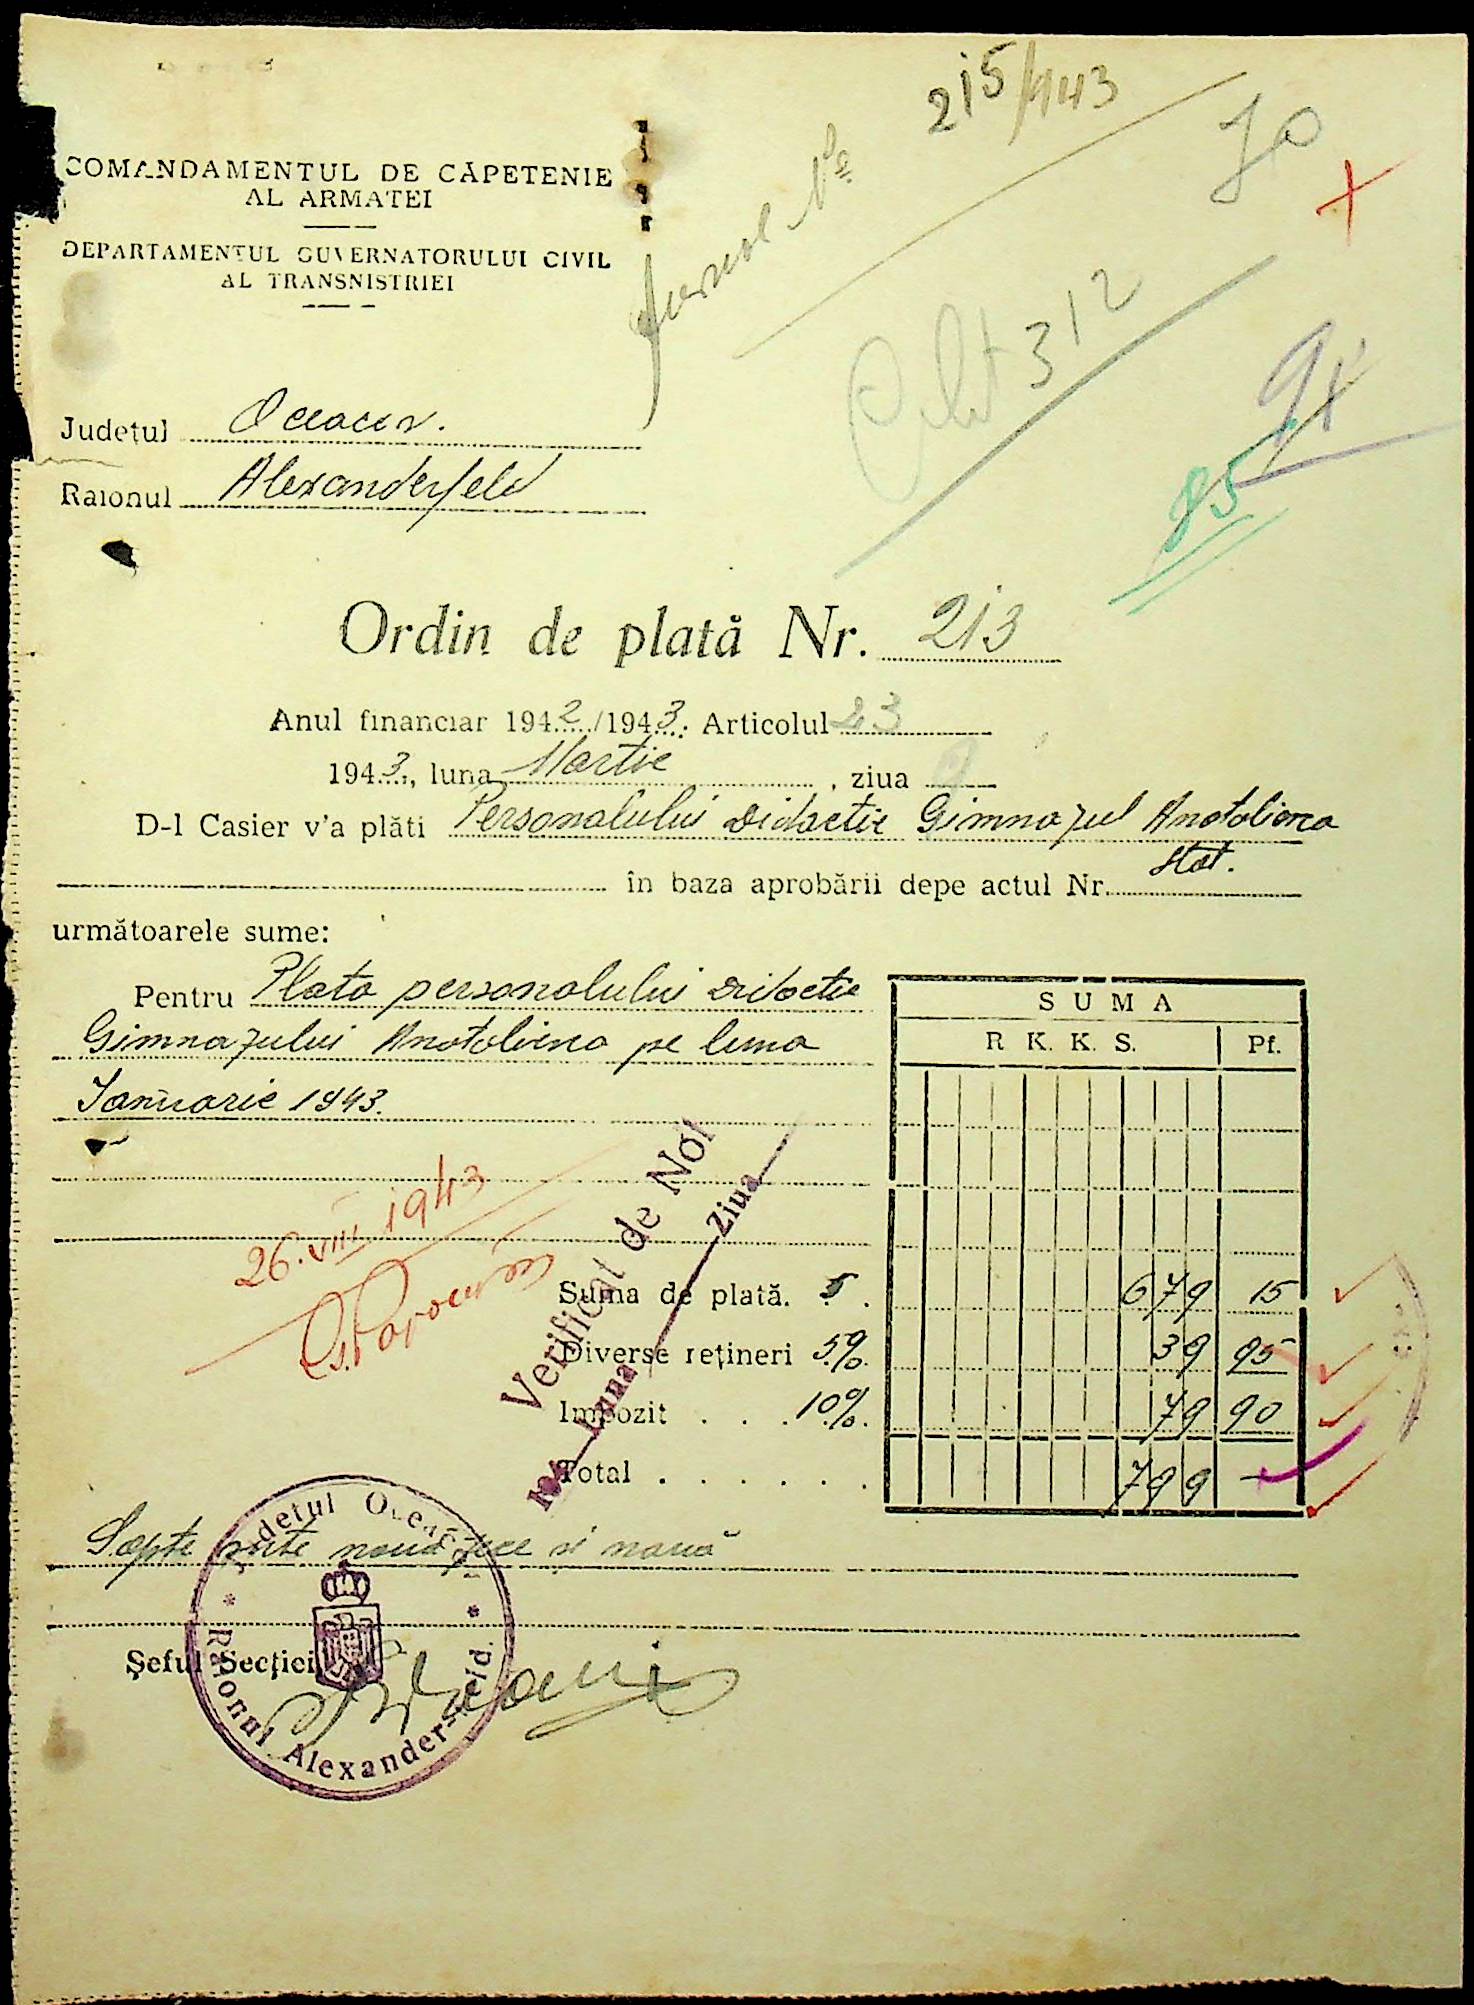 215/943
70
Jurnal No
COMANDAMENTUL DE CĂPETENIE
AL ARMATEI
DEPARTAMENTUL GUVERNATORULUI CIVIL
AL TRANSNISTRIEI
312
91
85
Judeţul Oceacov.
Raionul Alexanderfeld
Ordin de plată Nr. 213
Anul financiar 1942/1943. Articolul 23
1943., luna Martie, ziua 9
D-l Casier v'a plăti Personalului Didactic Gimnazul Anatolievca
în baza aprobării depe actul Nr. Stat.
următoarele sume:
Pentru Plata personalului didactic
Gimnazului Anatolievca pe luna
Ianuarie 1943.
SUMA
R. K. K. S. Pf.
26.VIII 1943
Verificat de Noi
194 Luna Ziua
Suma de plată. 679 15
Diverse reţineri 5% 39 95
Impozit . . . 10% 79 90
Total . . . . . . 799 –
Sapte sute nouă zece si nouă
Şeful Secţiei
Judetul Oceacov * Raionul Alexanderfeld. *